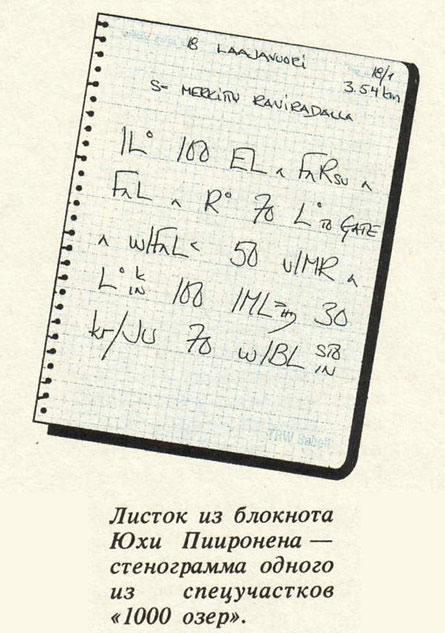 18 LAAJAVUORI
18/1
3.54 km
S- MERKITTY RAVIRADALLA
1L° 100 EL ʌ FaRsu ʌ
FaL ʌ R° 70 L° TO GATE
ʌ w/FaL < 50 v/MR ʌ
L° k IN 100 /ML 30
kr/Ju 70 w/BL STO IN
Листок из блокнота
Юхи Пииронена —
стенограмма одного
из спецучастков
«1000 озер».